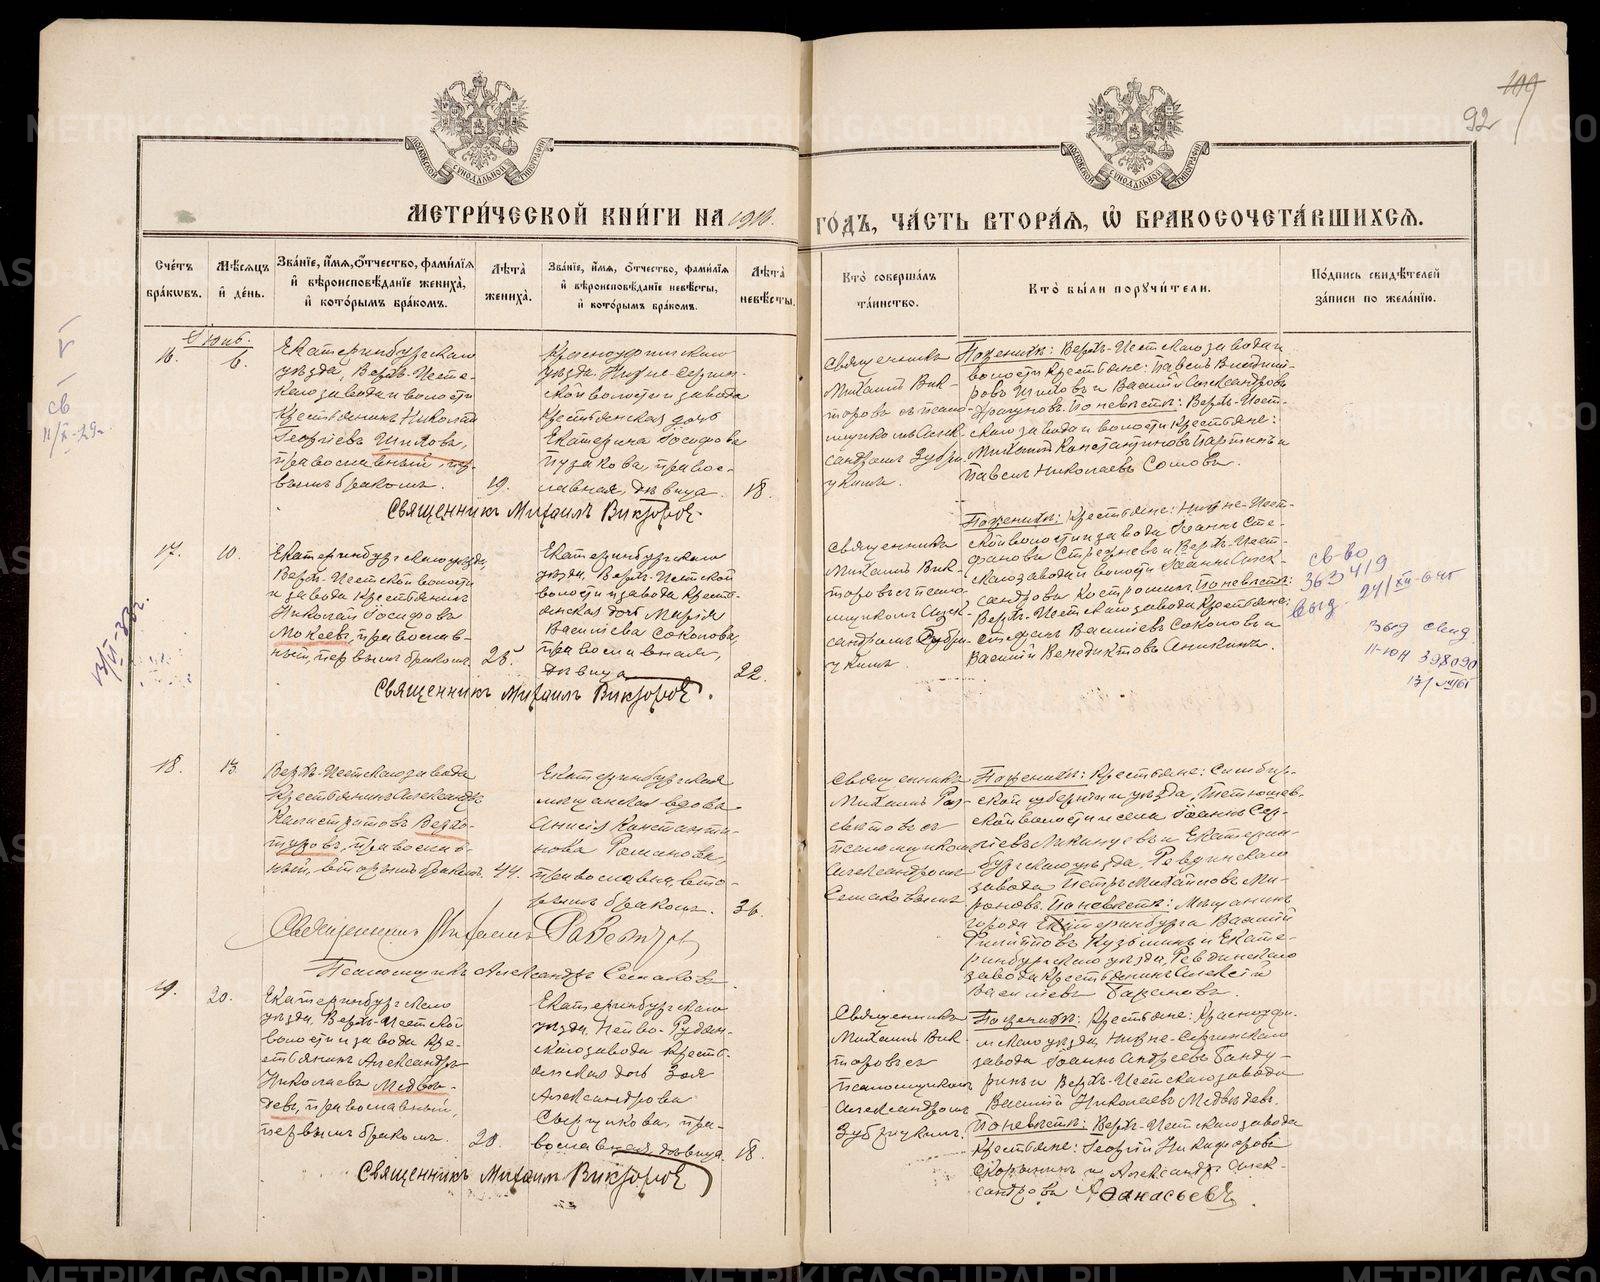 109
92
МОСКОВСКОЙ СѴНОДАЛЬНОЙ ТИПОГРАФІИ
МОСКОВСКОЙ СѴНОДАЛЬНОЙ ТИПОГРАФІИ
МЕТРИ́ЧЕСКОЙ КНИ́ГИ НА 1910. ГО́ДЪ, ЧА́СТЬ ВТОРА́Я, Ѽ БРАКОСОЧЕТА́ВШИХСЯ.
Сче́тъ бра́кωвъ.
Мѣ́сяцъ и҆ де́нь.
Зва́нїе, и҆́мя, ѻ҆́тчество, фами́лїя и҆ вѣроисповѣ́данїе жениха̀, и҆ кото́рымъ бра́комъ.
Лѣ́та жениха̀.
Зва́нїе, и҆́мя, ѻ҆́тчество, фами́лїя и҆ вѣроисповѣ́данїе невѣ́сты, и҆ кото́рымъ бра́комъ.
Лѣ́та невѣ́сты.
Кто̀ соверша́лъ та́инство.
Кто̀ бы́ли поручи́тели.
По́дпись свидѣ́телей за́писи по жела́нїю.
16.
6.
Екатеринбургскаго
уѣзда, Верхъ-Исет-
скаго завода и волости
крестьянинъ Николай
Георгіевъ
православный, пер-
вымъ бракомъ.
19.
Красноуфимскаго
уѣзда Нижне-Сергин-
ской волости и завода
крестьянская дочь
Екатерина Іосифова
Пузакова, правос-
лавная, дѣвица.
18.
Священникъ
Михаилъ Вик-
торовъ съ псало-
мщикомъ Алек-
сандромъ Зубри-
цкимъ.
По женихѣ: Верхъ-Исетскаго завода и
волости крестьяне: Павелъ
и Василій Александровъ
Драгуновъ. По невѣстѣ: Верхъ-Исет-
скаго завода и волости крестьяне:
Михаилъ Константиновъ Паршинъ и
Павелъ Николаевъ
Священникъ Михаилъ Викторовъ.
17.
10.
Екатеринбургскаго уѣзда,
Верхъ-Исетской волости
и завода крестьянинъ
Николай Іосифовъ
Мокеевъ, православ-
ный, первымъ бракомъ.
25.
Екатеринбургскаго
уѣзда, Верхъ-Исетской
волости и завода кресть-
янская дочь Марія
Васильева Соколова,
православная,
дѣвица
22.
Священникъ
Михаилъ Вик-
торовъ съ псало-
мщикомъ Алек-
сандромъ Зубри-
цкимъ.
По женихѣ: Крестьяне: Нижне-Исет-
ской волости и завода Іоаннъ Сте-
фановъ Стрежневъ и Верхъ-Исет-
скаго завода и волости Іоаннъ Алек-
сандровъ Костроминъ. По невѣстѣ:
Верхъ-Исетскаго завода крестьяне:
Стефанъ Васильевъ Соколовъ и
Василій Венедиктовъ Аникинъ.
св-во
363419
выд. 24/XII-64г
Священникъ Михаилъ Викторовъ.
18.
13.
Верхъ-Исетскаго завода
крестьянинъ Александръ
Калистратовъ Верхо-
туровъ, православ-
ный, вторымъ бракомъ.
44.
Екатеринбургская
мѣщанская вдова
Анисія Константи-
нова Романова,
православная, вто-
рымъ бракомъ.
36.
Священникъ
Михаилъ
съ
псаломщикомъ
Александромъ
Семаковымъ
По женихѣ: Крестьяне: Симбир-
ской губерніи и уѣзда,
волости и села Іоаннъ Сер-
гіевъ и Екатерин-
бургскаго уѣзда, Ревдинскаго
завода Петръ Михайловъ Ми-
роновъ. По невѣстѣ: Мѣщанинъ
города Екатеринбурга Василій
Филипповъ Кузьминъ и Екате-
ринбургскаго уѣзда, Ревдинскаго
завода крестьянинъ Алексѣй
Васильевъ
Священникъ Михаилъ
Псаломщикъ Александръ Семаковъ.
19.
20.
Екатеринбургскаго
уѣзда, Верхъ-Исетской
волости и завода кре-
стьянинъ Александръ
Николаевъ Медвѣ-
девъ, православный,
первымъ бракомъ.
20.
Екатеринбургскаго
уѣзда, Нейво-Рудян-
скаго завода крестья-
янская дочь Зоя
Александрова
Сырчикова, пра-
вославная, дѣвица.
18.
Священникъ
Михаилъ Вик-
торовъ съ
псаломщикомъ
Александромъ
Зубрицкимъ.
По женихѣ: Крестьяне: Красноуфи-
мскаго уѣзда, Нижне-Сергинскаго
завода Іоаннъ Андреевъ Банду-
ринъ и Верхъ-Исетскаго завода
Василій Николаевъ Медвѣдевъ.
По невѣстѣ: Верхъ-Исетскаго завода
крестьяне: Георгій Никифоровъ
и Александръ Алек-
сандровъ Аѳанасьевъ.
Священникъ Михаилъ Викторовъ